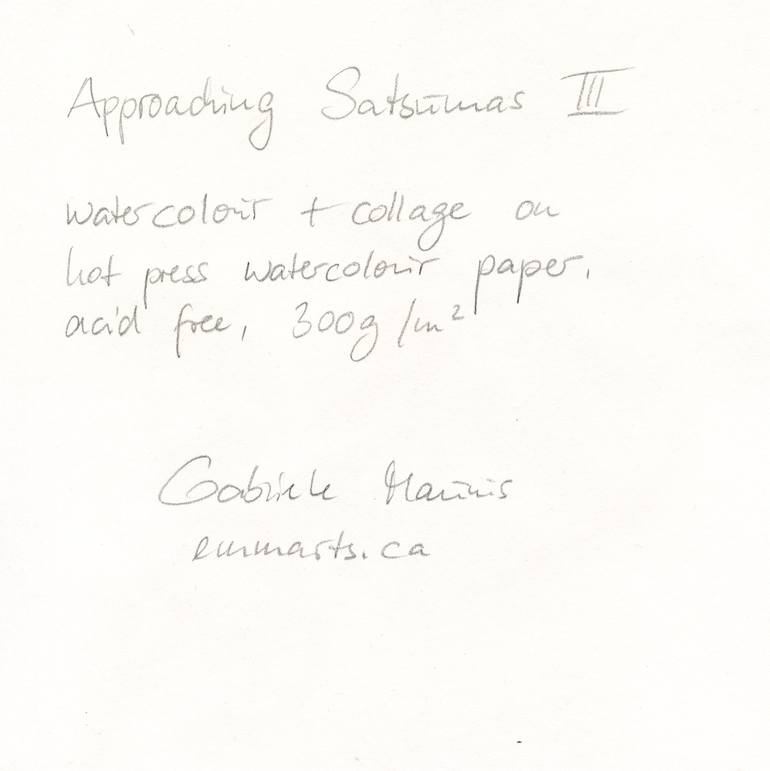 Approaching Satsumas III
watercolour + collage on
hot press watercolour paper,
acid free, 300g/m²
Gabriele Maurus
emmarts.ca